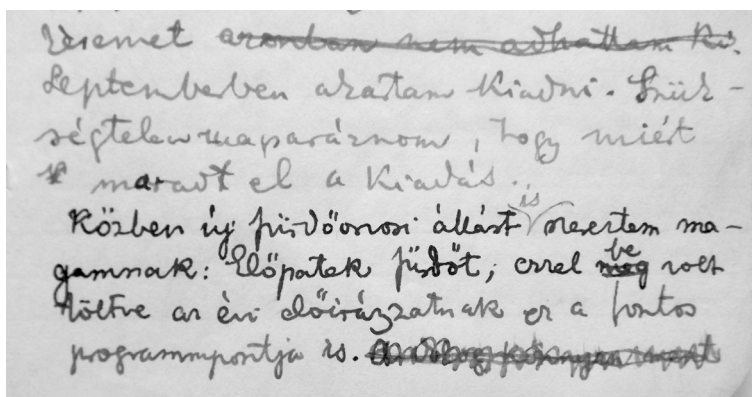 részemet azonban nem adhattam ki.
Septemberben akartam kiadni. Szük-
ségtelen magaráznom, hogy miért
maradt el a kiadás.
Közben új fürdőorvosi állást is szereztem ma-
gamnak: Előpatak fürdőt; ezzel meg be volt
töltve az évi előirázzatnak ez a fontos
programmpontja is.